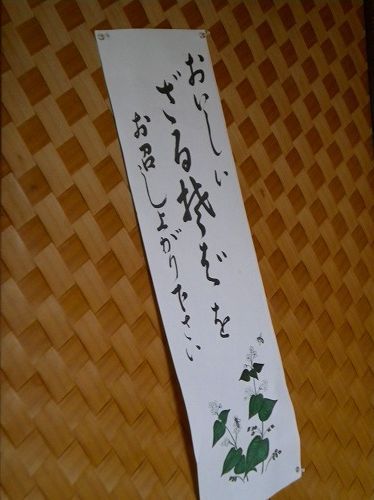 おいしい
ざる楚ばを
お召し上がり下さい